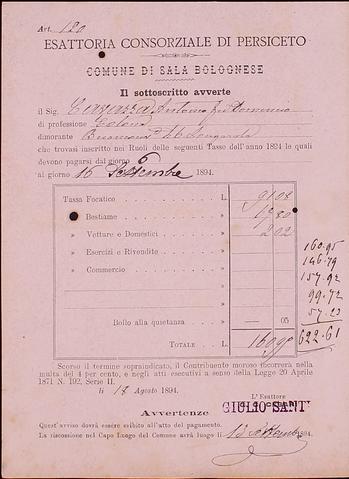 Art. 120
ESATTORIA CONSORZIALE DI PERSICETO
COMUNE DI SALA BOLOGNESE
Il sottoscritto avverte
il Sig. Antonio fu Domenico
di professione Colono
dimorante
che trovasi inscritto nei Ruoli delle seguenti Tasse dell'anno 1894 le quali
devono pagarsi dal giorno 6
al giorno 16 Settembre 1894.
Tassa Focatico L.
» Bestiame »
» Vetture e Domestici » 2 02
» Esercizi e Rivendite »
» Commercio »
Bollo alla quietanza — 05
TOTALE L. 160 95
160.95
146.79
157.92
99.72
57.23
622.61
Scorso il termine sopraindicato, il Contribuente moroso incorrerà nella
multa del 4 per cento, e negli atti esecutivi a senso della Legge 20 Aprile
1871 N. 192, Serie II.
li 18 Agosto 1894.
L'Esattore
GIULIO SANT
Avvertenze
Quest'avviso dovrà essere esibito all'atto del pagamento.
La riscossione nel Capo Luogo del Comune avrà luogo li 13 Settembre 1894.